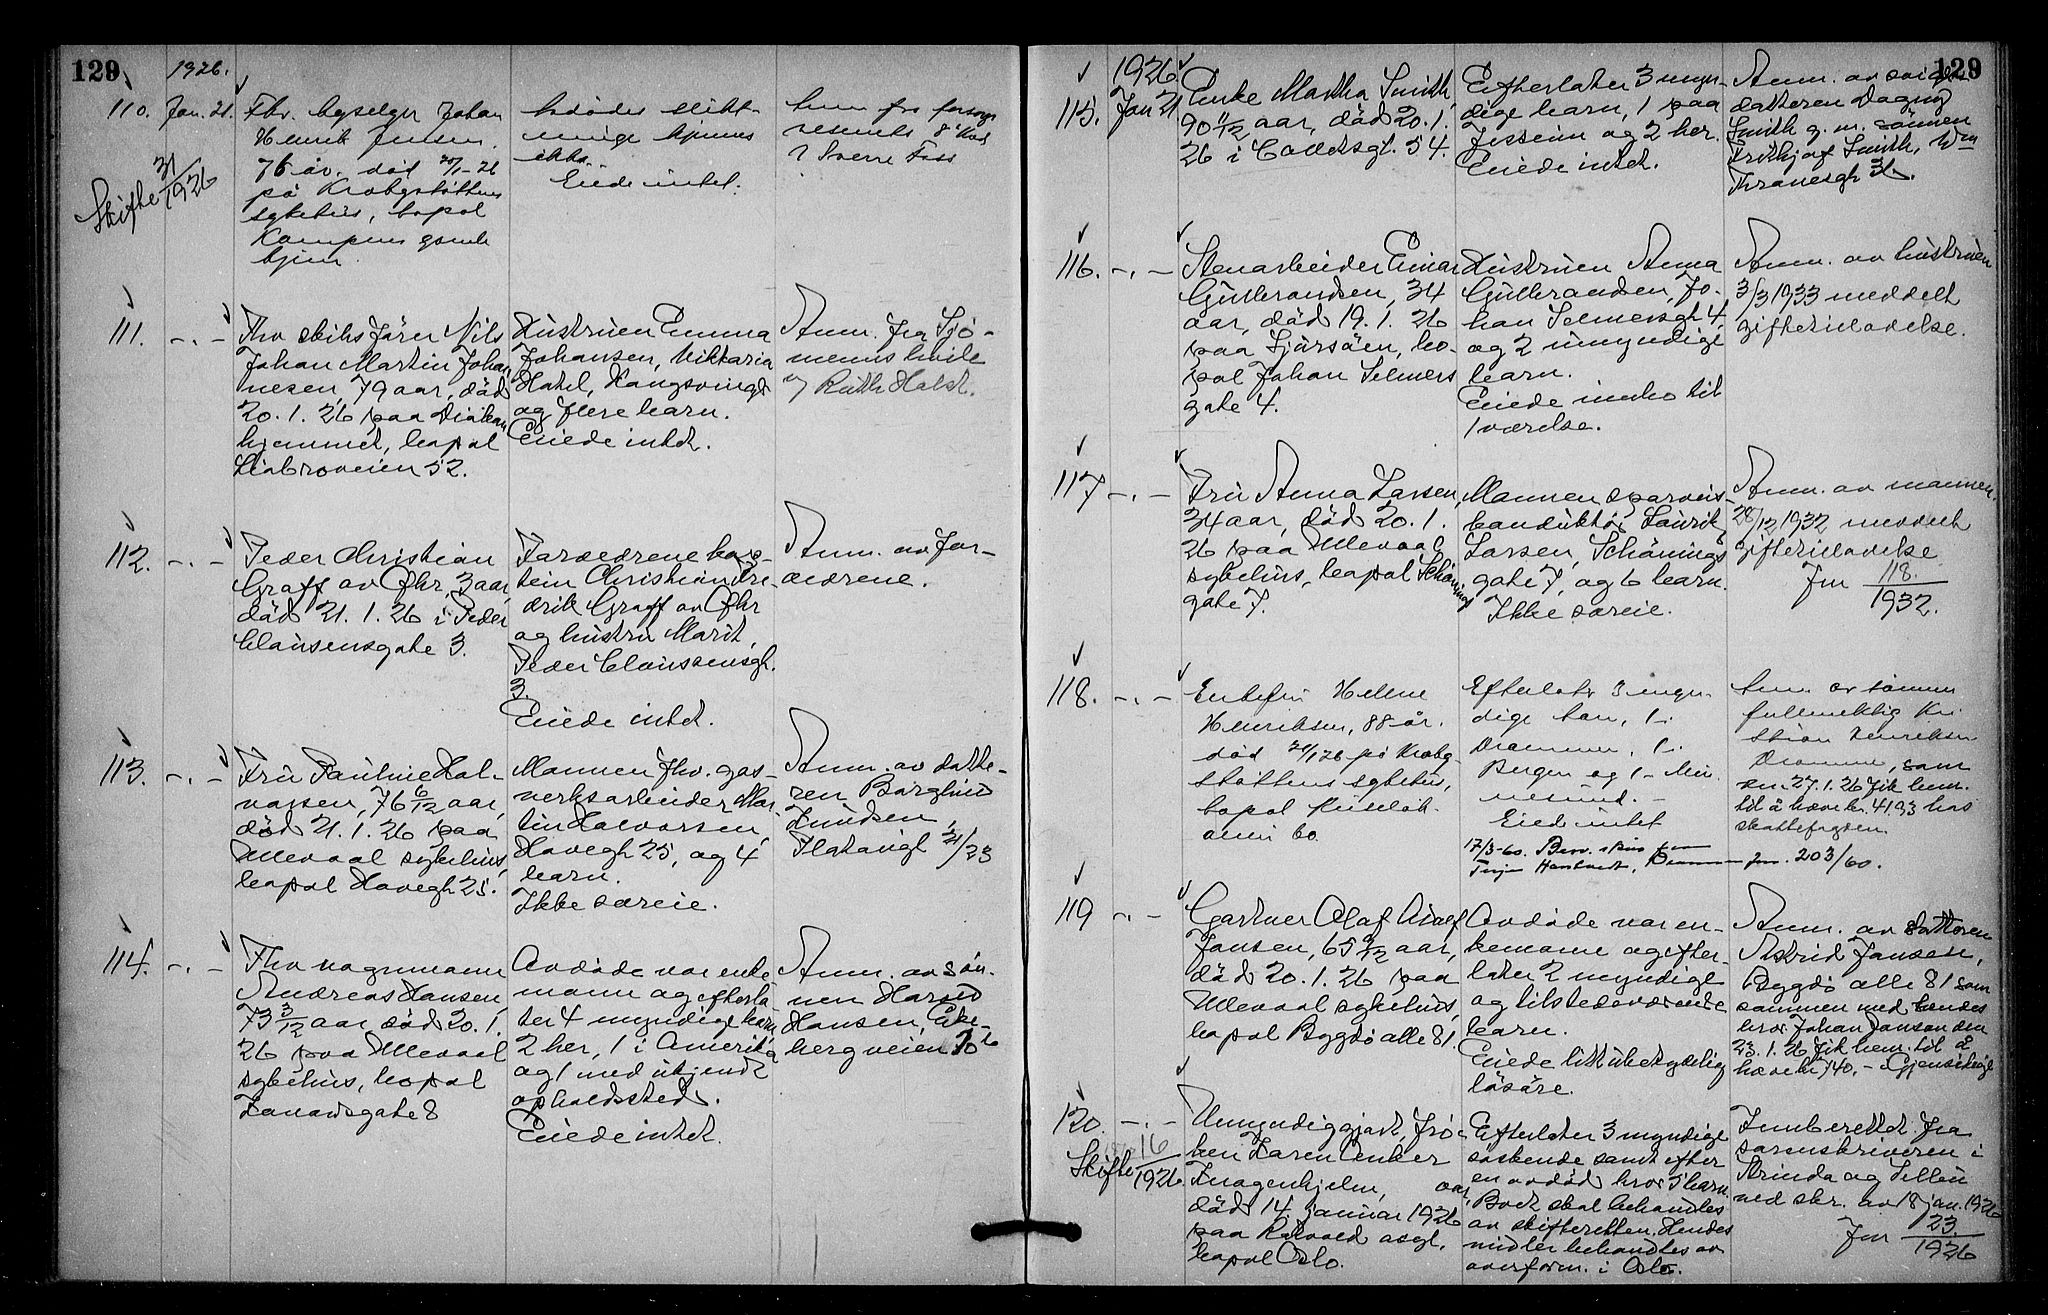 129
1926.
110. Jan. 21.
Skifte 31/1926
Fhv. byselger Johan
Henrik Jensen.
76 år. død 20/1-26
på Krohgstøttens
sykehus, bopæl
Kampens gamle
hjem.
Avdødes slekt-
ninge kjennes
ikke.
Eiede intet.
Anm. fra forsorgs
vesenets
Sverre Foss
111. -.-
Fhv skibsfører Nils
Johan Martin Johan
nesen, 79 aar, død
20.1.26 paa Diakon
hjemmet, bopæl
Liabroveien 52.
Hustruen Emma
Johansen, Viktoria
Hotel, Kongsvinger
og flere barn.
Eiede intet.
Anm. fra Sjø-
menns hvile
v/ Ruth Holst.
112. -.-
Peder Christian
Graff av Ohr, 3 aar,
død 21.1.26 i Peder
Clausensgate 3.
Forældrene kap-
tein Christian Fre-
drik Graff av Ohr
og hustru Marit,
Peder Claussensgt.
3.
Eiede intet.
Anm. av for-
ældrene.
113. -.-
Fru Pauline Hal-
vorsen, 76 6/12 aar,
død 21.1.26 paa
Ullevaal sykehus,
bopæl Havegt 25.
Mannen fhv. gas-
verksarbeider Mar-
tin Halvorsen,
Havegt 25, og 4
barn.
Ikke særeie.
Anm. av datte-
ren Borghild
Knudsen,
Platougt 31/33
114. -.-
Fhv vognmann
Andreas Hansen,
73 3/12 aar, død 20.1.
26 paa Ullevaal
sykehus, bopæl
Lanardsgate 8
Avdøde var enke
mann og efterla
ter 4 myndige barn
2 her, 1 i Amerika
og 1 med ukjendt
opholdssted.
Eiede intet.
Anm. av søn-
nen Harald
Hansen, Eke-
bergveien
129
1926
115. Jan 21
Enke Martha Smith,
90 11/12 aar, død 20.1.
26 i Colletsgt. 54.
Efterlater 3 myn-
dige barn, 1 paa
Jessheim og 2 her.
Eiede intet.
Anm. av sviger
datteren Dagny
Smith g.m. sønnen
Frithjof Smith, Wm
Thranesgt 31.
116. -.-
Stenarbeider Einar
Gulbrandsen, 34
aar, død 19.1.26
paa Sjursøen, bo-
pæl Johan Selmers
gate 4.
Hustruen Anna
Gulbrandsen, Jo-
han Selmersgt 4,
og 2 umyndige
barn.
Eiede innbo til
1 værelse.
Anm. av hustruen
3/3 1933 meddelt
giftetilladelse.
117 -.-
Fru Anna Larsen,
34 aar, død 20.1.
26 paa Ullevaal
sykehus, bopæl Schønings
gate 7.
Mannen sporveis-
konduktør Laurik
Larsen, Schønings
gate 7, og 6 barn.
Ikke særeie.
Anm. av mannen.
28/12 1932 meddelt
giftetilladelse
Jnr 118./1932.
118. -.-
Enkefru Hellene
Henriksen, 88 år.
død 20/1 26 på Krohg-
støttens sykehus,
bopæl Ruseløk-
veien 60
Efterlater 3 myn-
dige barn, 1 i
Drammen, 1 i
Bergen og 1 - Min
nesund. -
Eied intet
17/3-60. Bev.
Drammen jnr. 203/60.
Anm. av sønnen
fullmektig Kri
stian Henriksen
Drammen, som
den 27.1.26 fik bem.
til å hæve kr. 41.93 hos
skattefogden.
119 -.-
Gartner Olaf Adolf
Jansen, 65 9/12 aar,
død 20.1.26 paa
Ullevaal sykehus,
bopæl Bygdø alle 81.
Avdøde var en-
kemann og efter-
later 2 myndige
og tilstedeværende
barn.
Eiede litt ubetydelig
løsøre.
Anm. av datteren
Astrid Jansen,
Bygdø alle 81 som
sammen med hendes
bror Johan Jansen den
23.1.26 fik bem. til å
hæve kr 140,- i Gjensidige
120. -.-
Skifte 16/1926
Umyndiggjort frø-
ken Karen Anker
Knagenhjelm, aar,
død 14 januar 1926
paa Rotvold asyl,
bopæl Oslo.
Efterlater 3 myndige
søskende samt efter
en avdød bror 5 barn.
Boet skal behandles
av skifteretten. Hendes
midler behandles av
overform. i Oslo.
Innberettet fra
sorenskriveren i
Strinda og Selbu
ved skr. av 18 jan. 1926
Jnr 23/1926